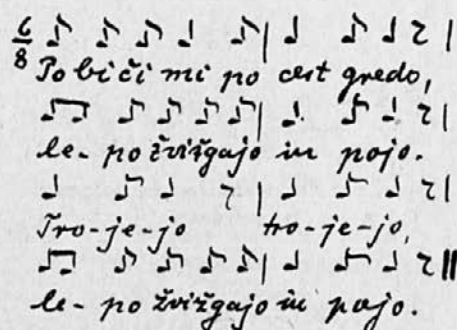 6/8
Pobiči mi po cest gredo,
le-po žvižgajo in pojo.
Tro-je-jo tro-je-jo,
le-po žvižgajo in pojo.